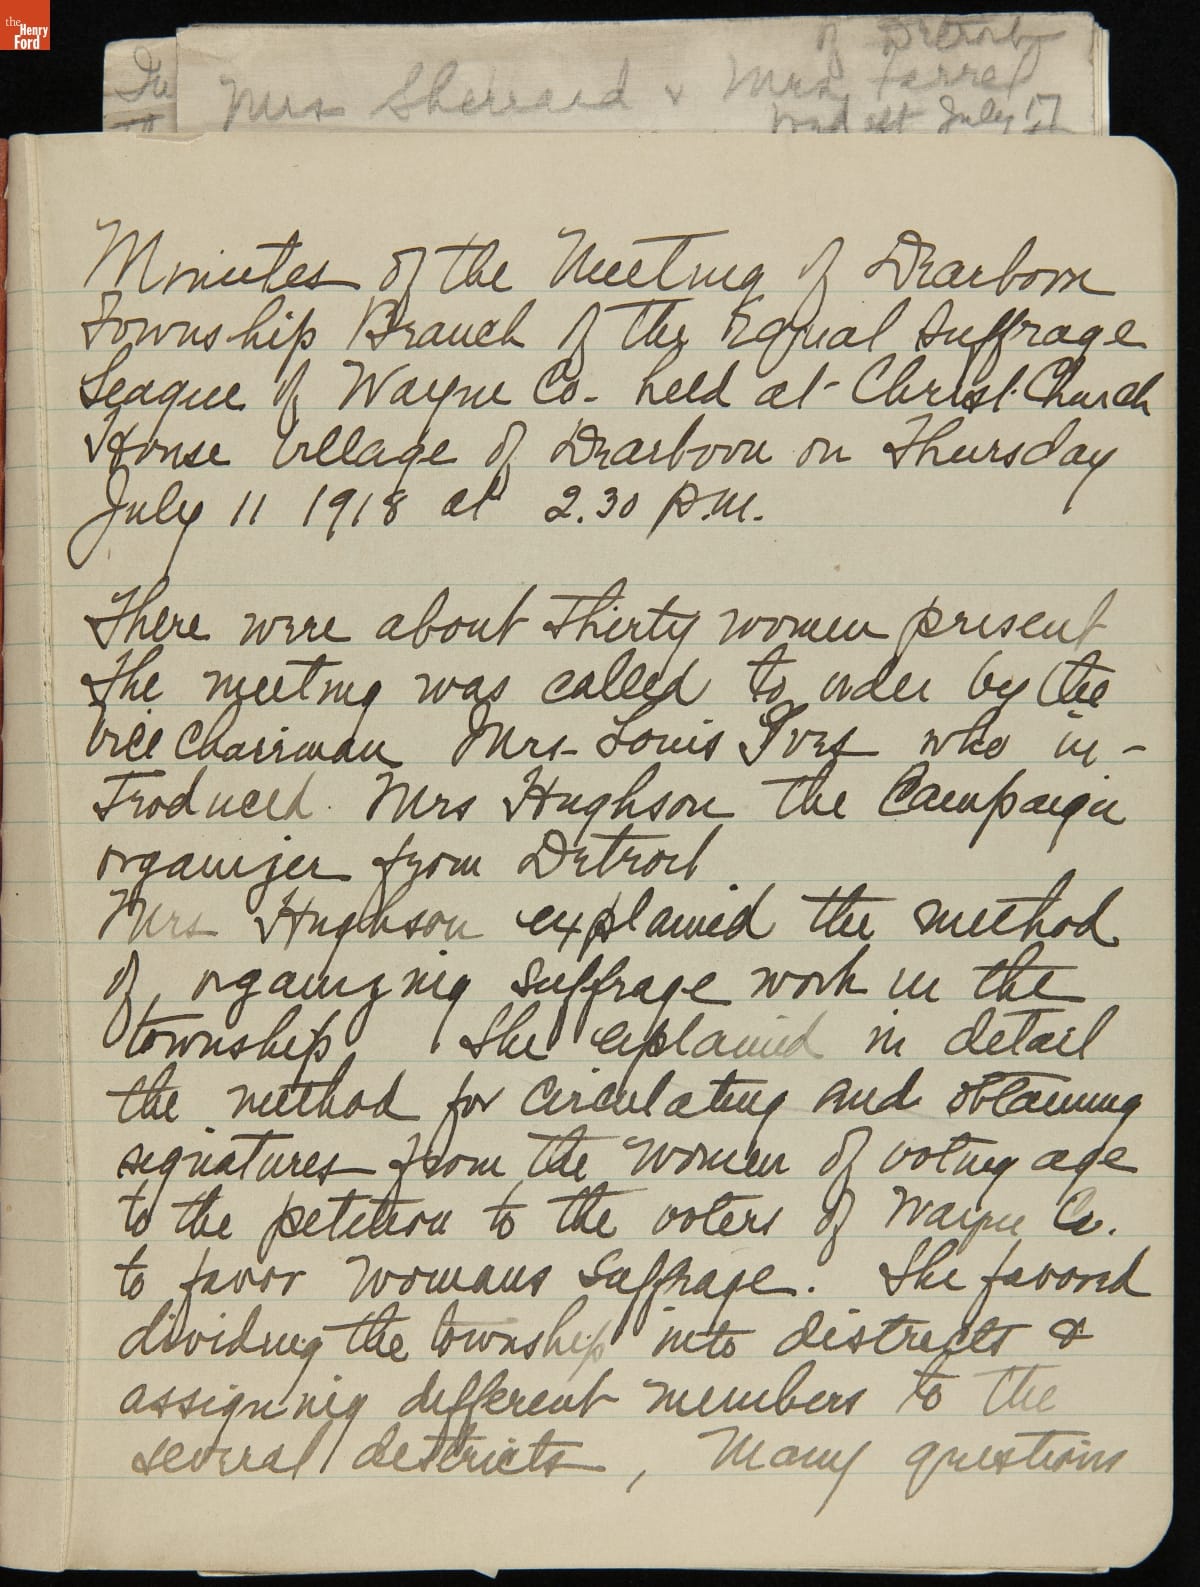 the
Henry
Ford
of Detroit
Mrs Sherrard & Mrs Farrel
July 17
Minutes of the Meeting of Dearborn
Township Branch of the Equal Suffrage
League of Wayne Co- held at Christ Church
House Village of Dearborn on Thursday
July 11 1918 at 2.30 P.M.
There were about Thirty women present
The meeting was called to order by the
Vice Chairman Mrs- Louis Ives who in-
troduced Mrs Hughson the Campaign
organizer from Detroit
Mrs Hughson explained the method
of organizing suffrage work in the
township. She explained in detail
the method for circulating and obtaining
signatures from the women of voting age
to the petition to the voters of Wayne Co.
to favor womans suffrage. She favored
dividing the township into districts &
assigning different members to the
several districts, Many questions